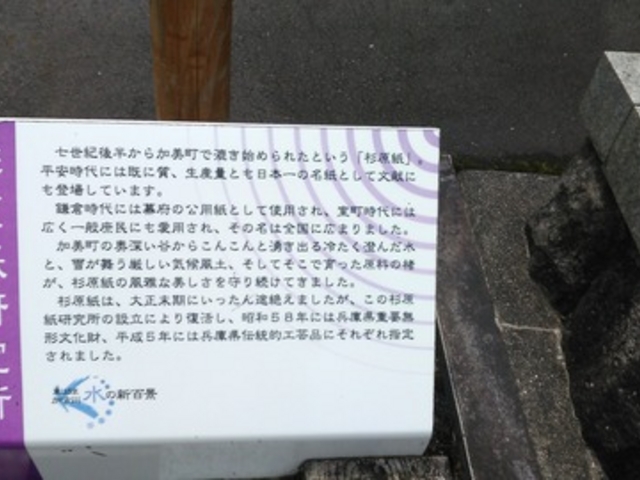 七世紀後半から加美町で漉き始められたという「杉原紙」。
平安時代には既に質、生産量とも日本一の名紙として文献に
も登場しています。
鎌倉時代には幕府の公用紙として使用され、室町時代には
広く一般庶民にも愛用され、その名は全国に広まりました。
加美町の奥深い谷からこんこんと湧き出る冷たく澄んだ水
と、雪が舞う厳しい気候風土、そしてそこで育った原料の楮
が、杉原紙の風雅な美しさを守り続けてきました。
杉原紙は、大正末期にいったん途絶えましたが、この杉原
紙研究所の設立により復活し、昭和58年には兵庫県重要無
形文化財、平成5年には兵庫県伝統的工芸品にそれぞれ指定
されました。
水の新百景